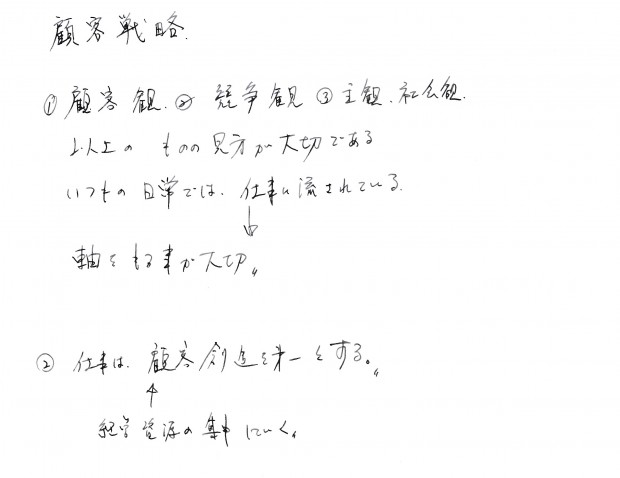 顧客戦略.
① 顧客観. ② 競争観 ③ 主観. 社会観.
以上の ものの見方が大切である
いつもの日常では. 仕事に流されている.
↓
軸をもる事が大切〃
② 仕事は. 顧客創造を第一とする。〃
↑
経営資源の集中にいく〃